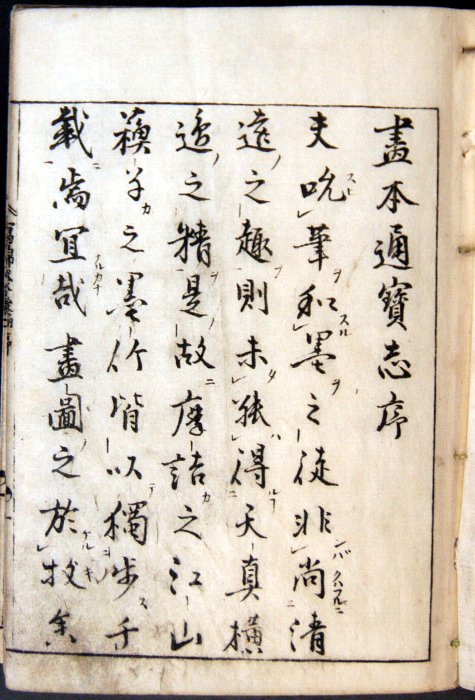 畫本通寶志序
夫吮筆和墨之徒非尚清
遠之趣則未能得天真橫
逸之精是故摩詰之江山
蘓子之墨竹皆以獨步千
載焉宜哉畫圖之於技